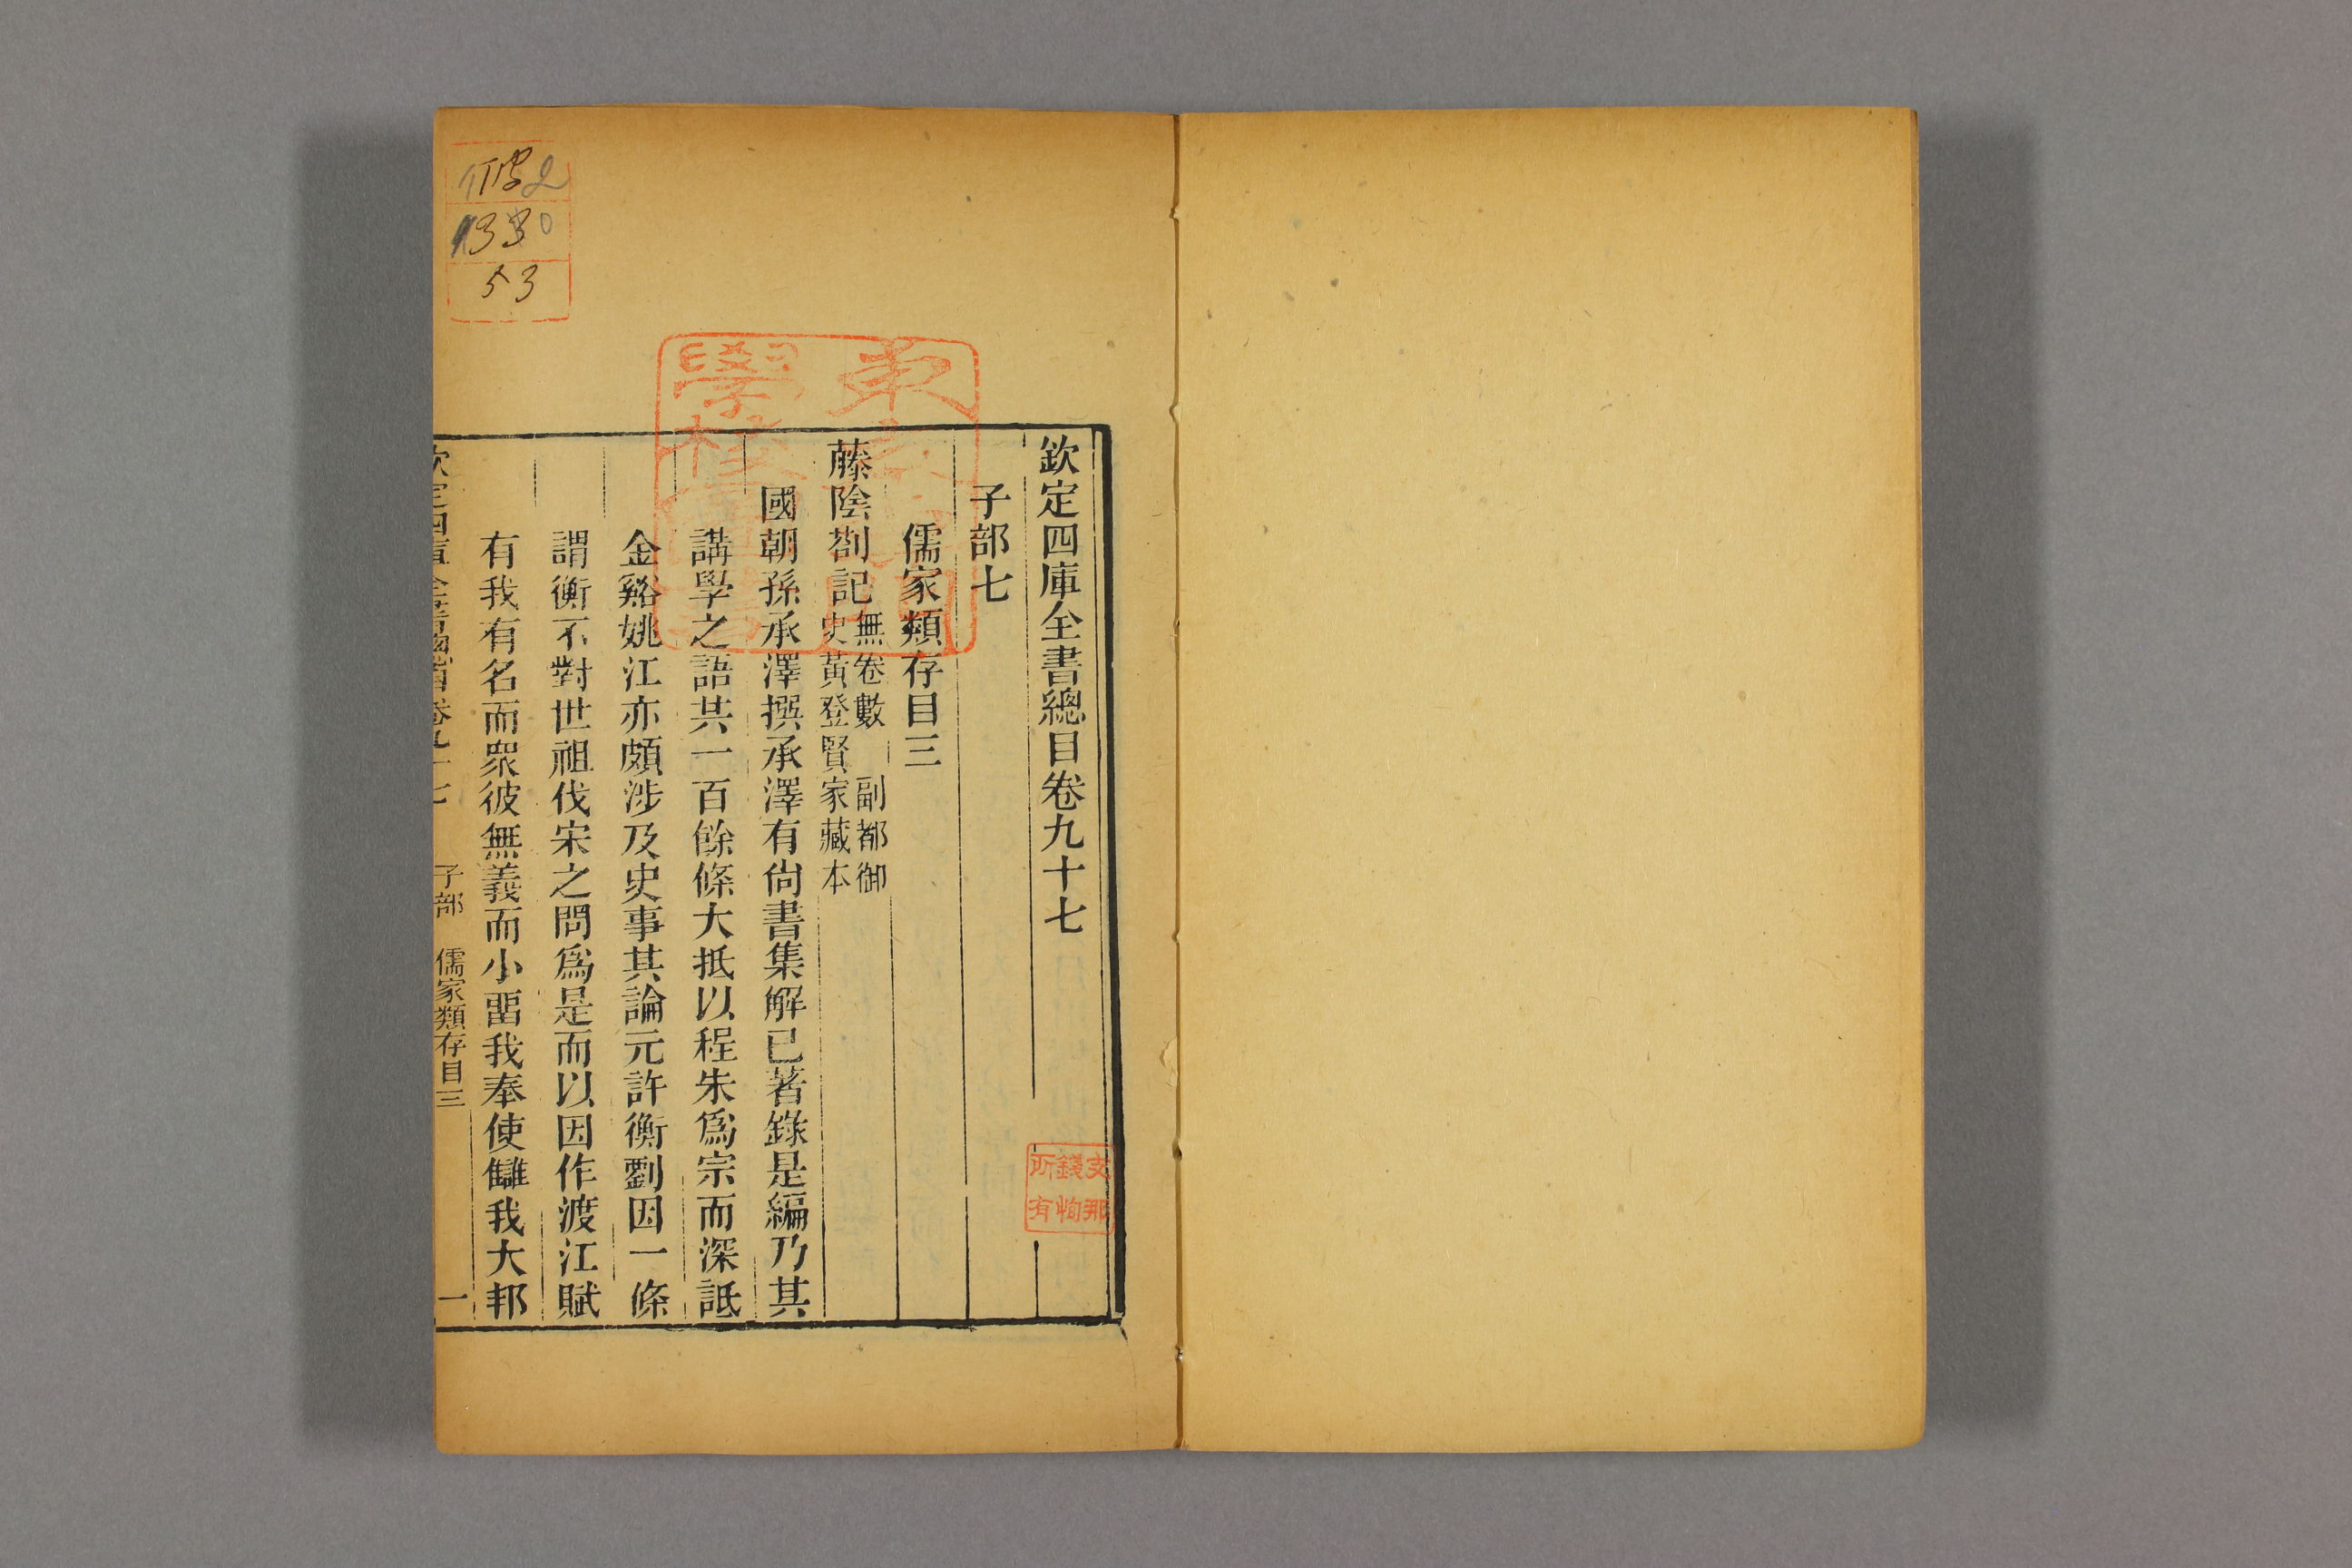 欽定四庫全書總目卷九十七
子部七
儒家類存目三
藤陰劄記無卷數 副都御史黃登賢家藏本
國朝孫承澤撰承澤有尙書集解已著錄是編乃其
講學之語共一百餘條大抵以程朱爲宗而深詆
金谿姚江亦頗涉及史事其論元許衡劉因一條
謂衡不對世祖伐宋之問爲是而以因作渡江賦
有我有名而衆彼無義而小畱我奉使讎我大邦
欽定四庫全書總目卷九十七 子部 儒家類存目三 一
支那
錢恂
所有
53